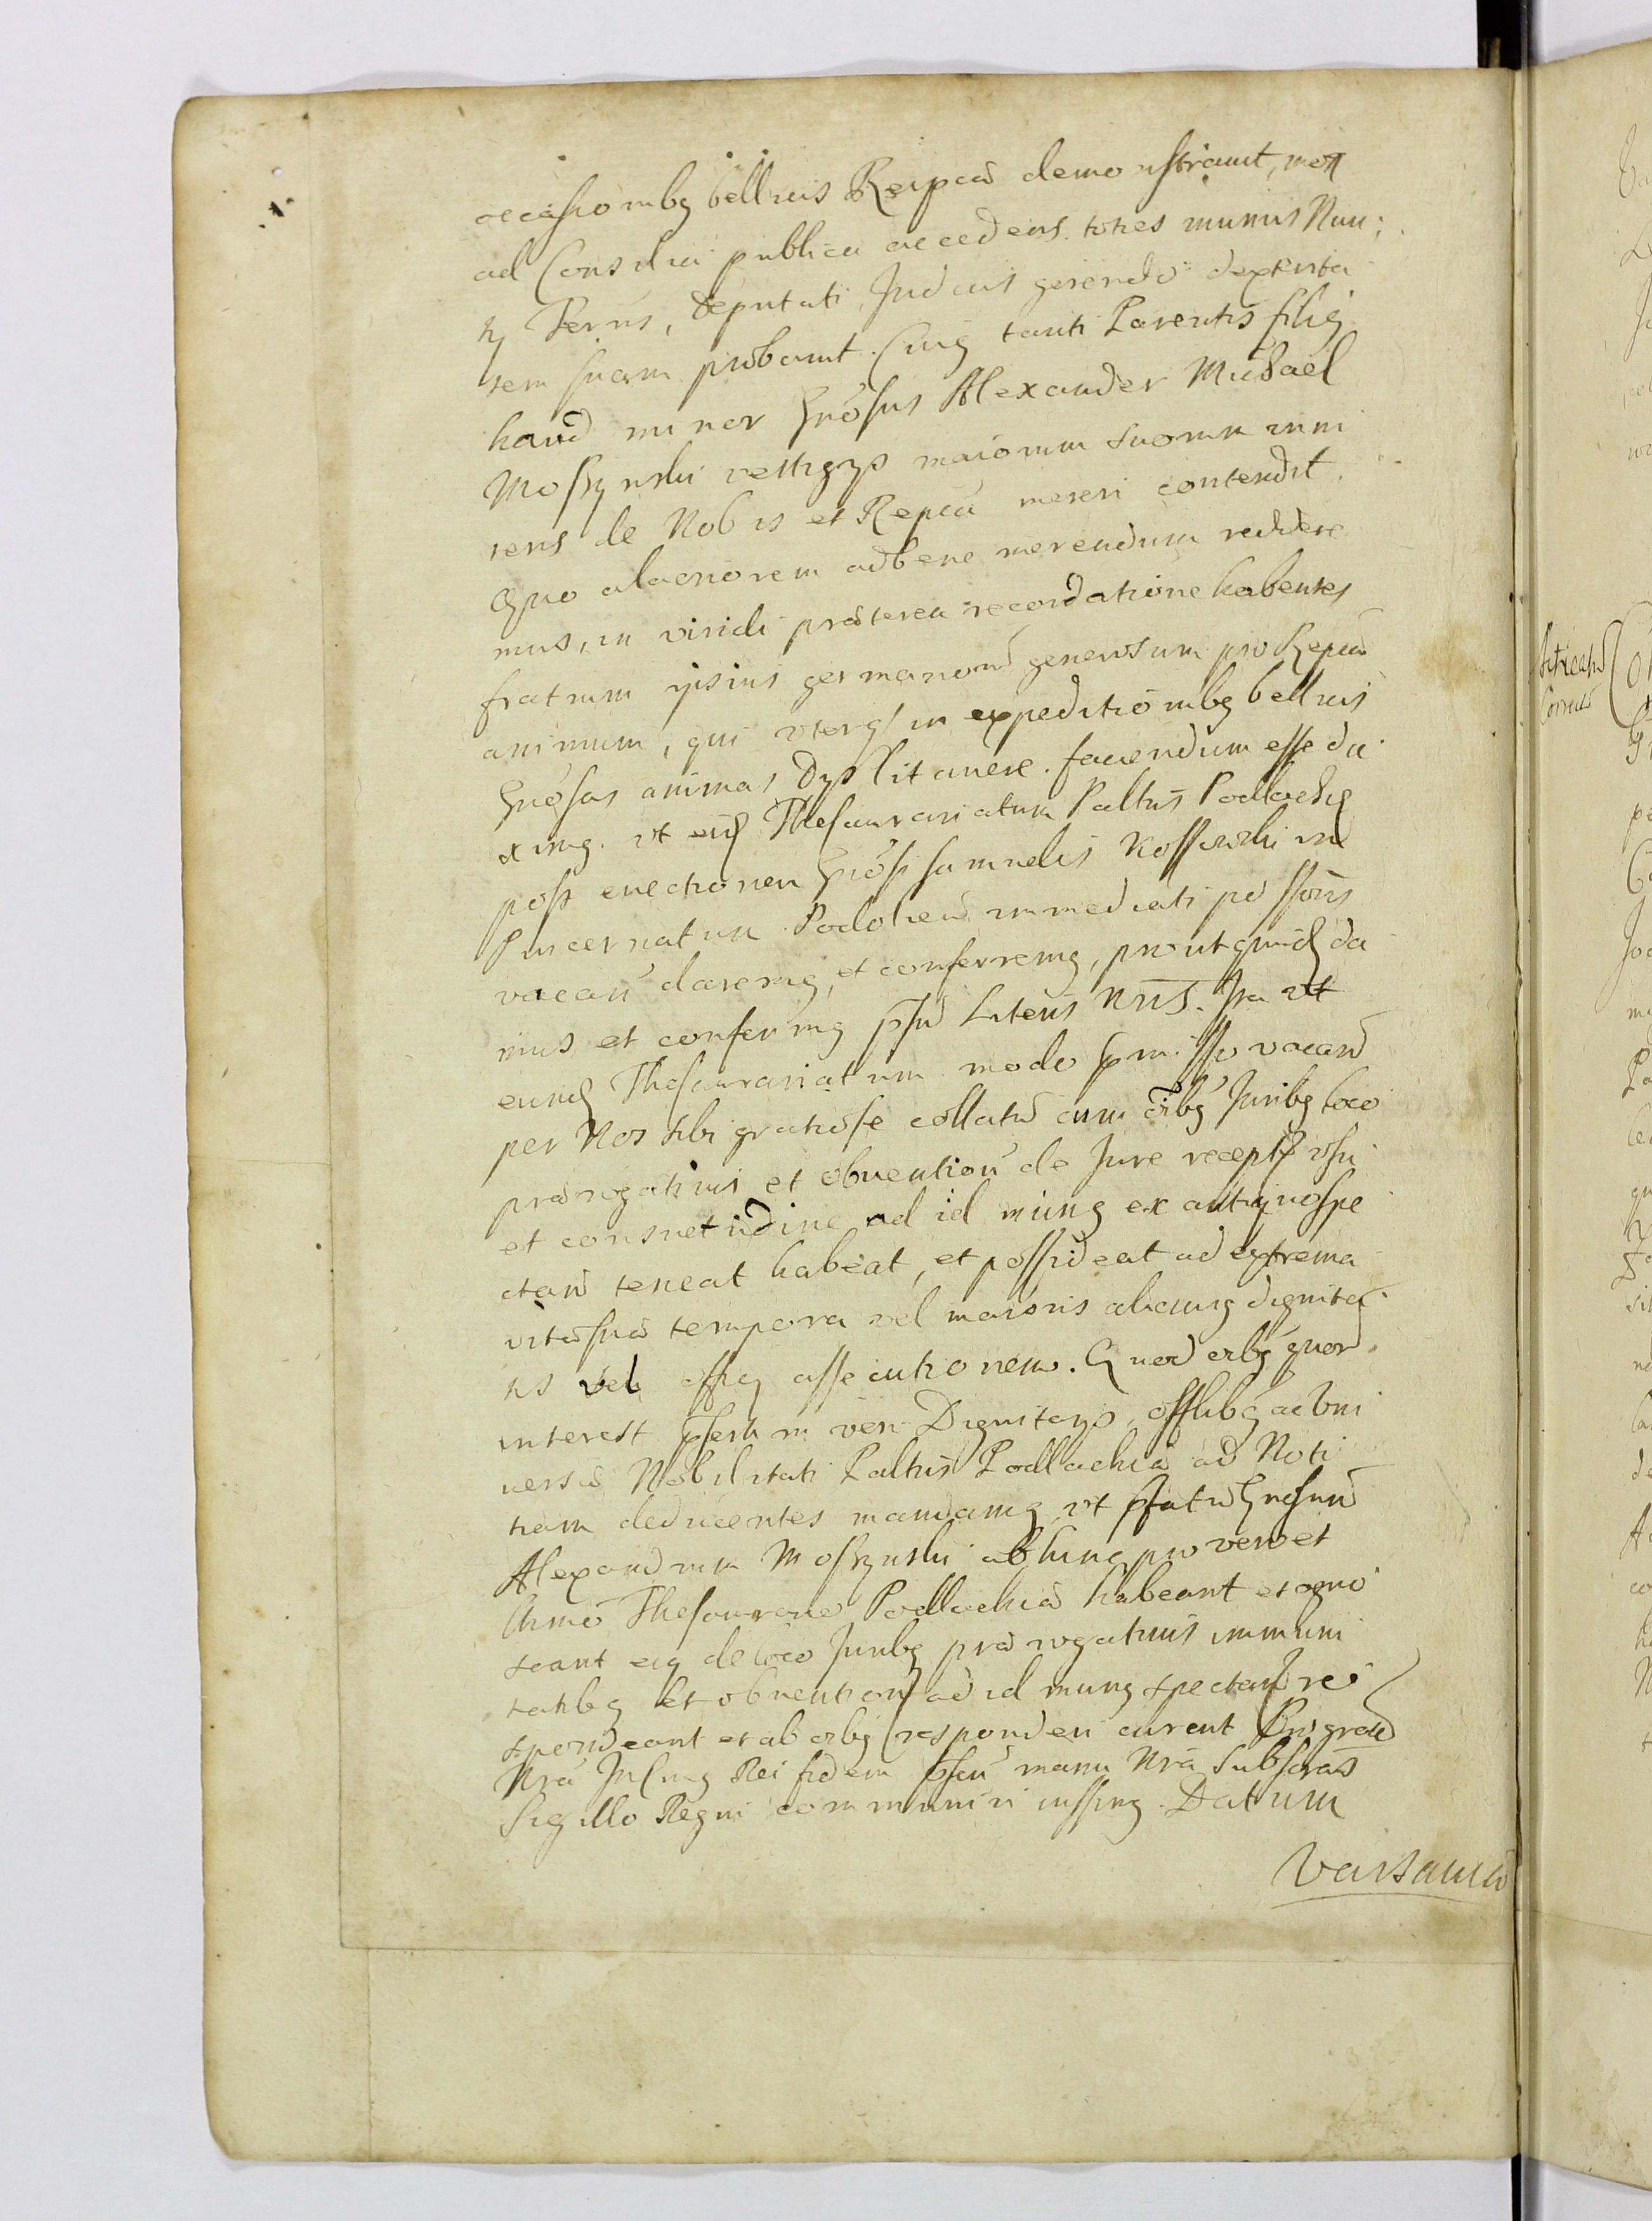 occasionibq bellicis Reipcæ demonstrauit, mox
ad Consilia publica accedens. toties munus Nun:
ij Terris, deputati Iudicis gerendo dexterita
tem suam probauit. Cuiq tanti Parentis filiq
haud minor Gnösus Alexander Michael
Moszynski vestigys maiorum suorum inni
tens de Nobis et Repca mereri contendit.
Quo alacriorem ad bene merendum redidere
mus, in viridi præterea recordatione habentes
fratrum ipsius germanorum generosum pro Repca
animum, qui vterq in expeditionibq bellicis
Gnösas animas dys litauere. faciendum esse du
ximq. vt eidȝ Thesaurariatum Paltus Podlachiȩ
post euectionem Gnösi Samuelis Kossowski in
Pincernatum Podolien immediati possoris
vacan daremq, et conferremq, prout quidȝ da
mus et conferimq pñtibȝ Literis Nris. Ita vt
eundȝ Thesaurariatum modo pmisso vacan
per Nos sibi gratiose collatu cum oibq Iuribq loco
prærogatiuis et obuention de Iure recepto vsu
et consuetudine ad id munq ex antiquo spe
ctan teneat habeat, et possideat ad extrema
vitæ suæ tempora vel maioris alicuiq dignita
tis vel officij assecutionem. Quod oibq quor
interest psertim vero Dignitarys, offlibq ac vni
uersæ Nobilitati Paltus Podlachiæ ad Noti
tiam deducentes mandamq vt pfatu Gnosum
Alexandrum Moszynski abhinc pro vero et
lttimo Thesaurario Podlachiæ habeant et agno
scant eiq de loco Iuribq prærogatiuis immuni
tatibq et obuention ad id munq spectan re
spondeant et ab oibq responderi curent Pro gra
Nra In cuiq Rei fidem pñtes manu Nra subscras
Sigillo Regni communiri iussimq. Datum
Varsauiæ